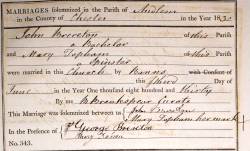 MARRIAGES solemnized in the Parish of Audlem
in the County of Chester in the Year 1830
John Brereton of this Parish
a Bachelor
and Mary Topham of this Parish
a Spinster
were married in this Church by Banns with Consent of
this Third Day of
June in the Year One thousand eight hundred and thirty
By Curate
This Marriage was solemnized between us John Brereton
Mary Topham her mark
In the Presence of George Brereton
No. 343.